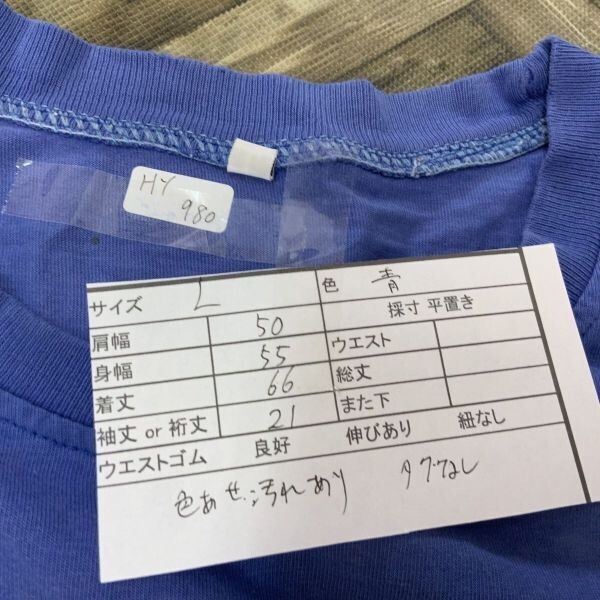 HY
980
サイズ L 色 青
肩幅 50 採寸 平置き
身幅 55 ウエスト
着丈 66 総丈
袖丈 or 裄丈 21 また下
ウエストゴム 良好 伸びあり 紐なし
色あせ、汚れあり タグなし